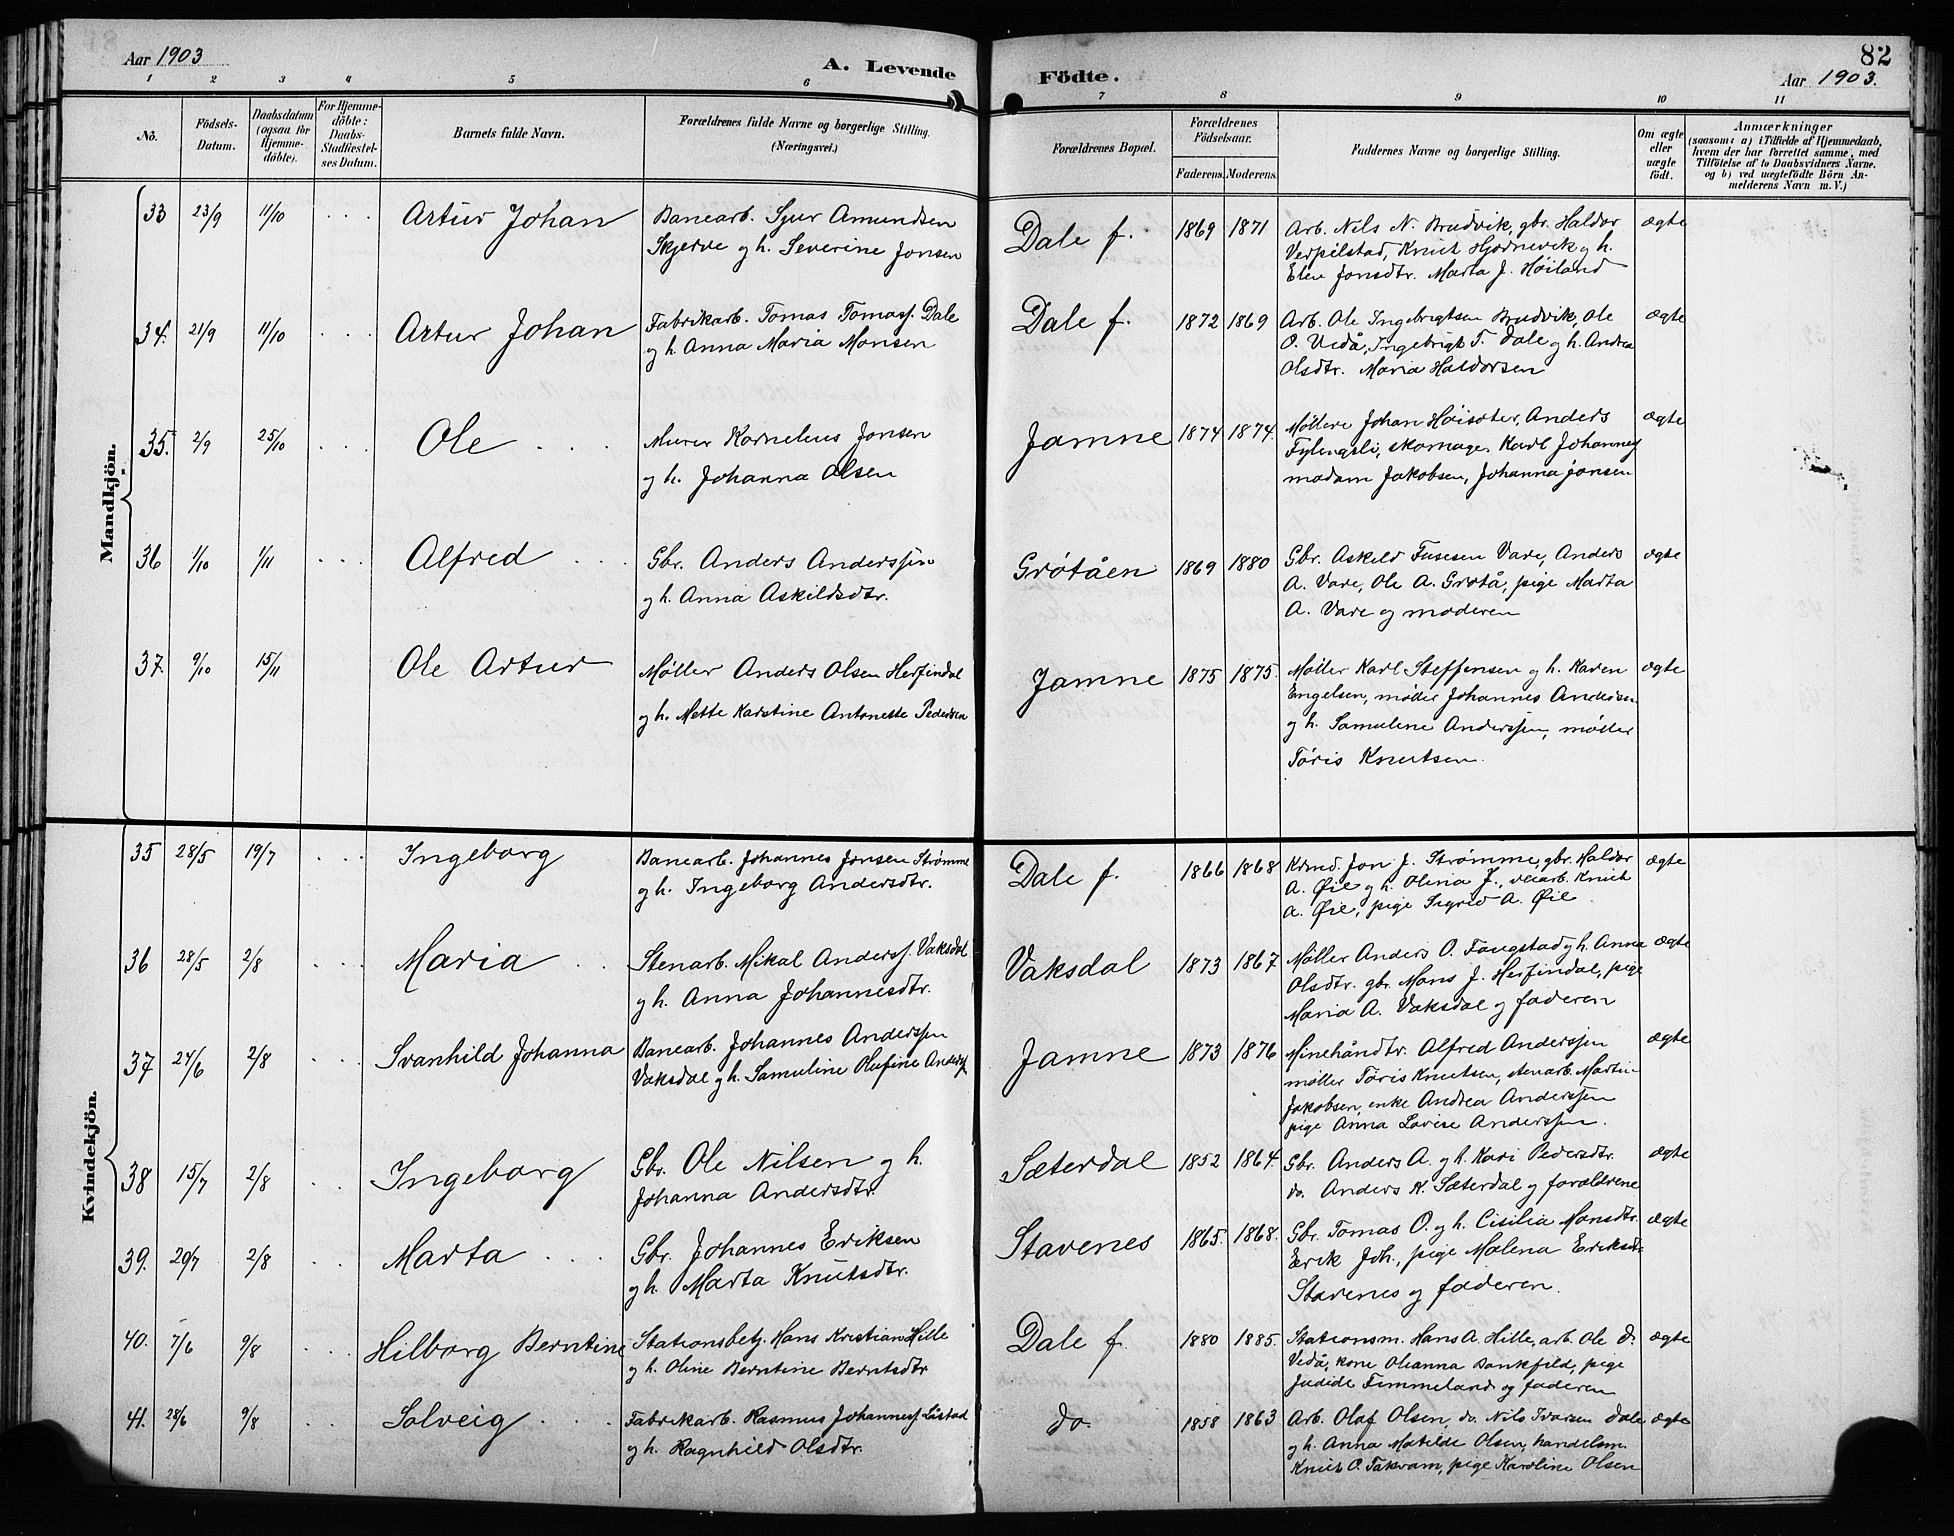 Aar 1903
A. Levende
Födte.
82
Aar 1903.
1 2 3 4 5 6 7 8 9 10 11
Nô.
Födsels-
Datum.
Daabsdatum
(ogsaa for
Hjemme-
döbte).
For Hjemme-
döbte:
Daabs-
Stadfæstel-
ses Datum.
Barnets fulde Navn.
Forældrenes fulde Navne og borgerlige Stilling.
(Næringsvei.)
Forældrenes Bopæl.
Forældrenes
Födselsaar.
Faderens. Moderens.
Faddernes Navne og borgerlige Stilling.
Om ægte
eller
uægte
født.
Anmærkninger
(saasom: a) i Tilfælde af Hjemmedaab,
hvem der har forrettet samme, med
Tilföielse af to Daabsvidners Navne.
og b) ved uægtefödte Börn An-
melderens Navn m. V.)
Mandkjön.
33 23/9 11/10 Artur Johan
Banearb. Sjur Amundsen
Skjerve og h. Severine Jonsen
Dale f. 1869 1871
Arb. Nils N. Brudvik, gbr. Haldor
Verpilstad, Knut Hjørnevik og h.
Elen Jonsdtr. Marta J. Høiland
ægte
34. 21/9 11/10 Artur Johan
Fabrikarb. Tomas Tomass. Dale
og h. Anna Maria Monsen
Dale f. 1872 1869
Arb. Ole Ingebrigtsen Brudvik, Ole
O. Vedå, Ingebrigt T. Dale og h. Andrea
Olsdtr. Maria Haldorsen
ægte
35. 2/9 25/10 Ole
Murer Kornelius Jonsen
og h. Johanna Olsen
Jamne 1874 1874.
Møllere Johan Høisæter, Anders
Fylingsli, skomager Karl Johannes
madam Jakobsen, Johanna Jonsen
ægte
36 1/10 1/11 Alfred
Gbr. Anders Anderssen
og h. Anna Askildsdtr.
Grøtåen 1869 1880
Gbr. Askild Vare, Anders
A. Vare, Ole A. Grøtå, pige Marta
A. Vare og moderen
ægte
37. 9/10 15/11 Ole Artur
Møller Anders Olsen Herfindal
og h. Mette Karstine Antonette Pedersen
Jamne 1875 1875.
Møller Karl Steffensen og h. Karen
Engelsen, møller Johannes Andersen
og h. Samulene Anderssen, møller
Tøris Knutsen.
ægte
Kvindekjön.
35 28/5 19/7 Ingeborg
Banearb. Johannes Jonsen Strømme
og h. Ingeborg Andersdtr.
Dale f. 1866 1868
Krmd. Jon J. Strømme, gbr. Haldor
A. Øie og h. Olina J., Knut
A. Øie, pige Sigrid A. Øie
ægte
36 28/5 2/8 Maria
Stenarb. Mikal Anderss. Vaksdal
og h. Anna Johannesdtr.
Vaksdal 1873 1867.
Møller Anders O. Faugstad og h. Anna
Olsdtr. gbr. Mons J. Herfindal, pige
Maria A. Vaksdal og faderen
ægte
37 24/6 2/8 Svanhild Johanna
Banearb. Johannes Anderssen
Vaksdal og h. Samuline Olufine Anderss.
Jamne 1873 1876
Minehåndtr. Alfred Anderssen
møller Tøris Knutsen, stenarb. Martin
Jakobsen, enke Andrea Anderssen
pige Anna Lovise Anderssen.
ægte
38 15/7 2/8 Ingeborg
Gbr. Ole Nilsen og h.
Johanna Andersdtr.
Sæterdal 1852 1864.
Gbr. Anders A. og h. Kari Pedersdtr.
do. Anders K. Sæterdal og forældrene
ægte
39. 20/7 2/8 Marta
Gbr. Johannes Eriksen
og h. Marta Knutsdtr.
Stavenes 1865. 1868.
Gbr. Tomas O. og h. Cisilia Monsdtr.
Erik Joh., pige Malena Eriksdtr.
Stavenes og faderen.
ægte
40. 7/6 9/8 Hilborg Berntine
Stationsbetj. Hans Kristian Hille
og h. Oline Berntine Berntsdtr
Dale f. 1880 1885.
Stationsm. Hans A. Hille, arb. Ole O.
Vedå, kone Oleanna Dankfild, pige
Judide Fimmeland og faderen
ægte
41. 28/6 9/8 Solveig
Fabrikarb. Rasmus Johanness. Listad
og h. Ragnhild Olsdtr.
do. 1858 1863
Arb. Olaf Olsen, do. Nils Ivarsen Dale
og h. Anna Matilde Olsen, handelsm.
Knut O. Takvam, pige Karoline Olsen
ægte